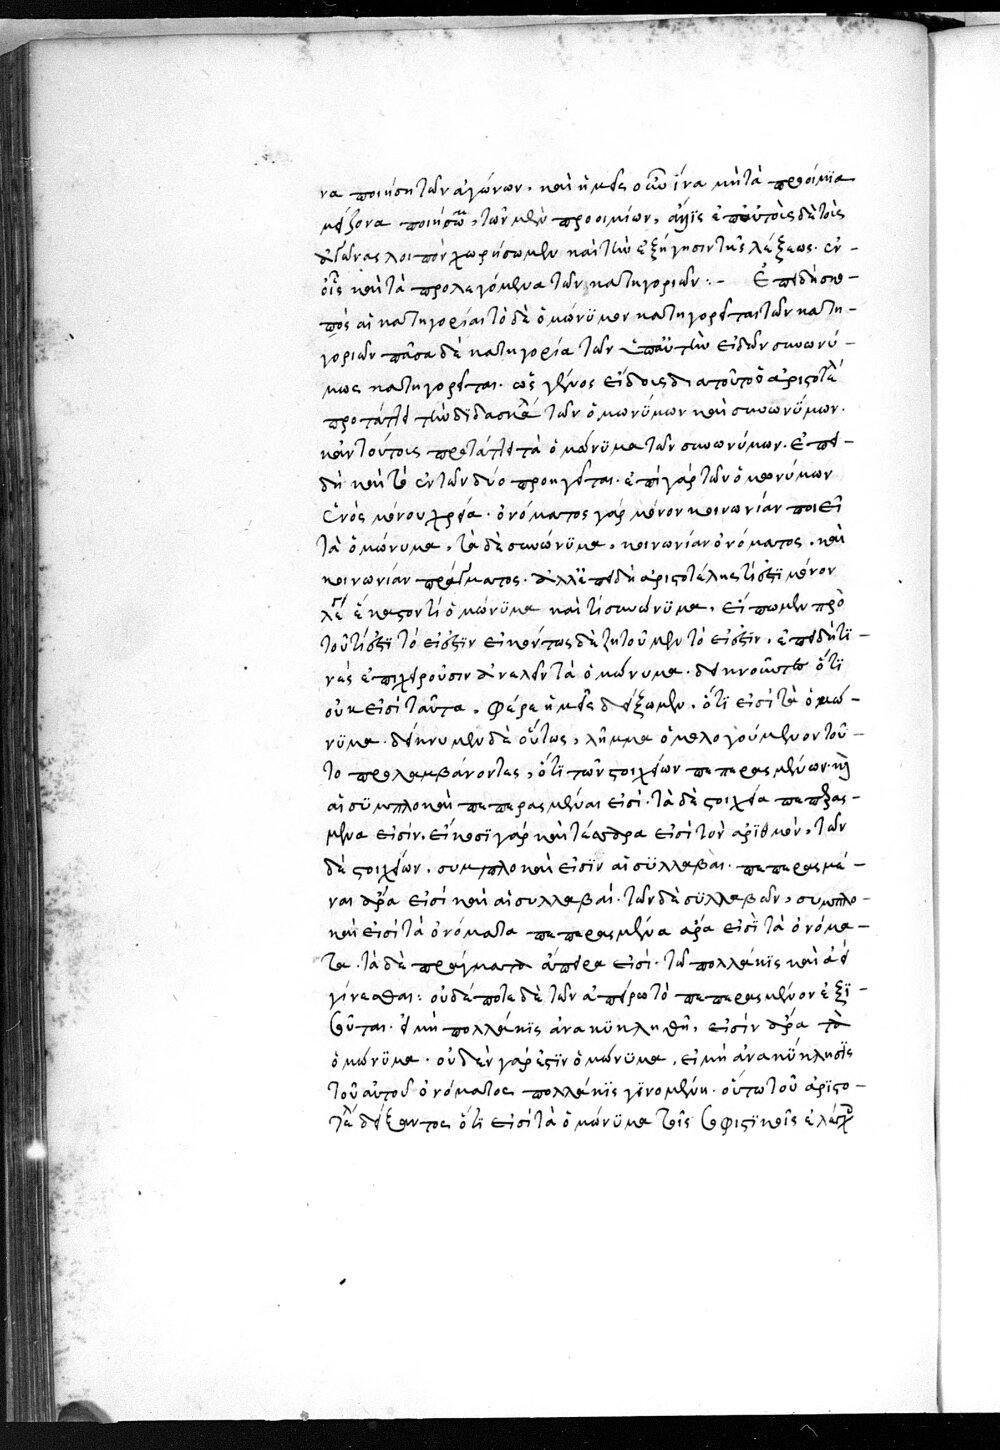 να ποιήση τῶν ἀγώνων. καὶ ἡμεῖς οὖν ἵνα μὴ τὰ προοίμια
μείζονα ποιήσωμεν, τῶν μὲν προοιμίων, ἅλις ἐπ' αὐτοὺς δὲ τοὺς
ἀγῶνας λοιπὸν χωρήσωμεν καὶ τὴν ἐξήγησιν τῆς λέξεως. ἐν
οἷς καὶ τὰ προλεγόμενα τῶν κατηγοριῶν :- Ἐπειδήπερ
αἱ κατηγορίαι τὸ δὲ ὁμώνυμον κατηγορεῖται τῶν κατη-
γοριῶν πᾶσα δὲ κατηγορία τῶν ὑπ' αὐτὴν εἰδῶν συνωνύ-
μως κατηγορεῖται. ὡς γένος εἴδους διὰ τοῦτο ὁ ἀριστοτέλης
προτάττει τὴν διδασκαλίαν τῶν ὁμωνύμων καὶ συνωνύμων.
κἂν τούτοις προτάττει τὰ ὁμώνυμα τῶν συνωνύμων. ἐπει-
δὴ καὶ τὸ ἓν τῶν δύο προηγεῖται. ἐπὶ γὰρ τῶν ὁμωνύμων
ἑνὸς μόνου χρεία. ὀνόματος γὰρ μόνον κοινωνίαν ποιεῖ
τὰ ὁμώνυμα, τὰ δὲ συνώνυμα, κοινωνίαν ὀνόματος, καὶ
κοινωνίαν πράγματος. ἀλλ' ἐπειδὴ ἀριστοτέλης τί ἐστι μόνον
λέγει ἕκαστον τί ὁμώνυμα καὶ τί συνώνυμα, εἴπωμεν πρὸ
τοῦ τί ἐστι τὸ εἰ ἔστιν εἰκότως δὲ ζητοῦμεν τὸ εἰ ἔστιν, ἐπειδὴ τι-
νὲς ἐπιχειροῦσιν ἀνελεῖν τὰ ὁμώνυμα. δεικνύουσιν ὅτι
οὐκ εἰσὶ ταῦτα. φέρε ἡμεῖς δείξωμεν, ὅτι εἰσὶ τὰ ὁμώ-
νυμα. δείκνυμεν δὲ οὕτως, λῆμμα ὁμολογούμενον τοῦ-
το προλαμβάνοντες, ὅτι τῶν στοιχείων πεπερασμένων. καὶ
αἱ συμπλοκαὶ πεπερασμέναι εἰσί. τὰ δὲ στοιχεῖα πεπερασ-
μένα εἰσίν. εἴκοσι γὰρ καὶ τέσσαρα εἰσὶ τὸν ἀριθμόν, τῶν
δὲ στοιχείων. συμπλοκαὶ εἰσὶν αἱ συλλαβαί. πεπερασμέ-
ναι ἄρα εἰσὶ καὶ αἱ συλλαβαί. τῶν δὲ συλλαβῶν, συμπλο-
καὶ εἰσὶ τὰ ὀνόματα πεπερασμένα ἄρα εἰσὶ τὰ ὀνόμα-
τα. τὰ δὲ πράγματα ἄπειρα εἰσί. τῷ πολλάκις καὶ ἀεὶ
γίνεσθαι: οὐδέποτε δὲ τῶν ἀπείρω τὸ πεπερασμένον ἐξι-
σοῦται. εἰ μὴ πολλάκις ἀνακυκληθῆ, εἰσὶν ἄρα τὰ
ὁμώνυμα. οὐδὲν γὰρ ἐστὶν ὁμώνυμα, εἰ μὴ ἀνακύκλησις
τοῦ αὐτοῦ ὀνόματος πολλάκις γινομένη. οὕτω τοῦ ἀριστο-
τέλους δείξαντος ὅτι εἰσὶ τὰ ὁμώνυμα τοῖς σοφιστικοῖς ἐλέγχοις